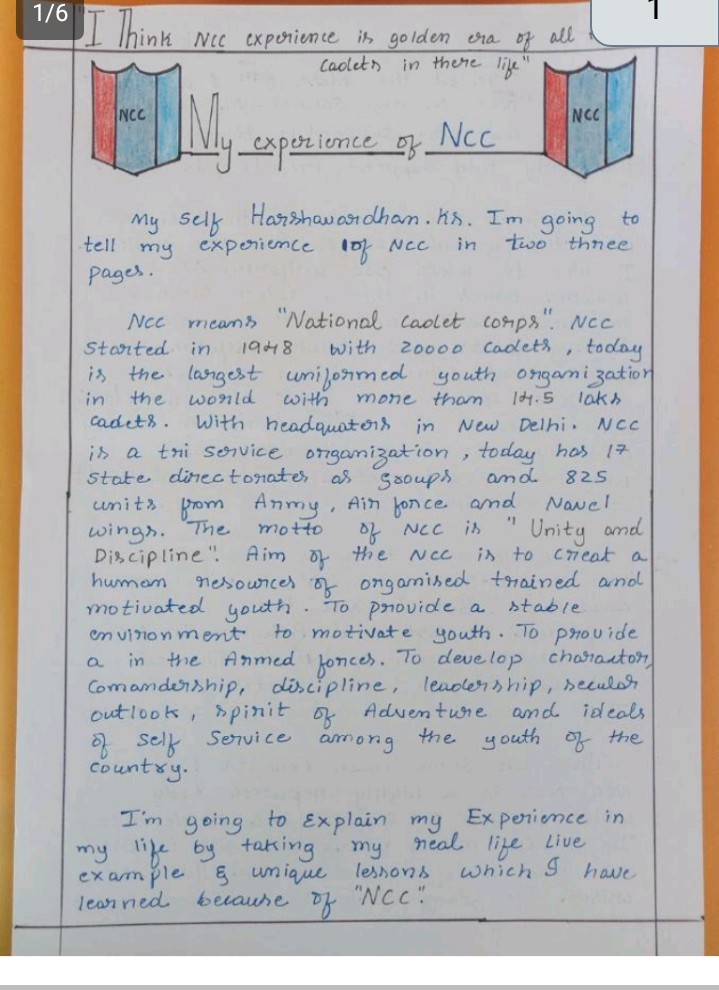 1/6
1
"I Think NCC experience is golden era of all
cadets in there life"
NCC
NCC
My experience of NCC
My self Harshavardhan.Ks. Im going to
tell my experience of NCC in two three
pages.
NCC means "National cadet corps". NCC
Started in 1948 with 20000 cadets, today
is the largest uniformed youth organization
in the world with more than 14.5 laks
cadets. With headquators in New Delhi. NCC
is a tri service organization, today has 17
State directorates as groups and 825
units from Army, Air force and Navel
wings. The motto of NCC is "Unity and
Discipline". Aim of the NCC is to creat a
human resources of organised trained and
motivated youth. To provide a stable
environment to motivate youth. To provide
a in the Armed forces. To develop charactor,
Comandership, discipline, leadership, secular
outlook, spirit of Adventure and ideals
of self Service among the youth of the
country.
I'm going to Explain my Experience in
my life by taking my real life Live
example & unique lessons which I have
learned because of "NCC".